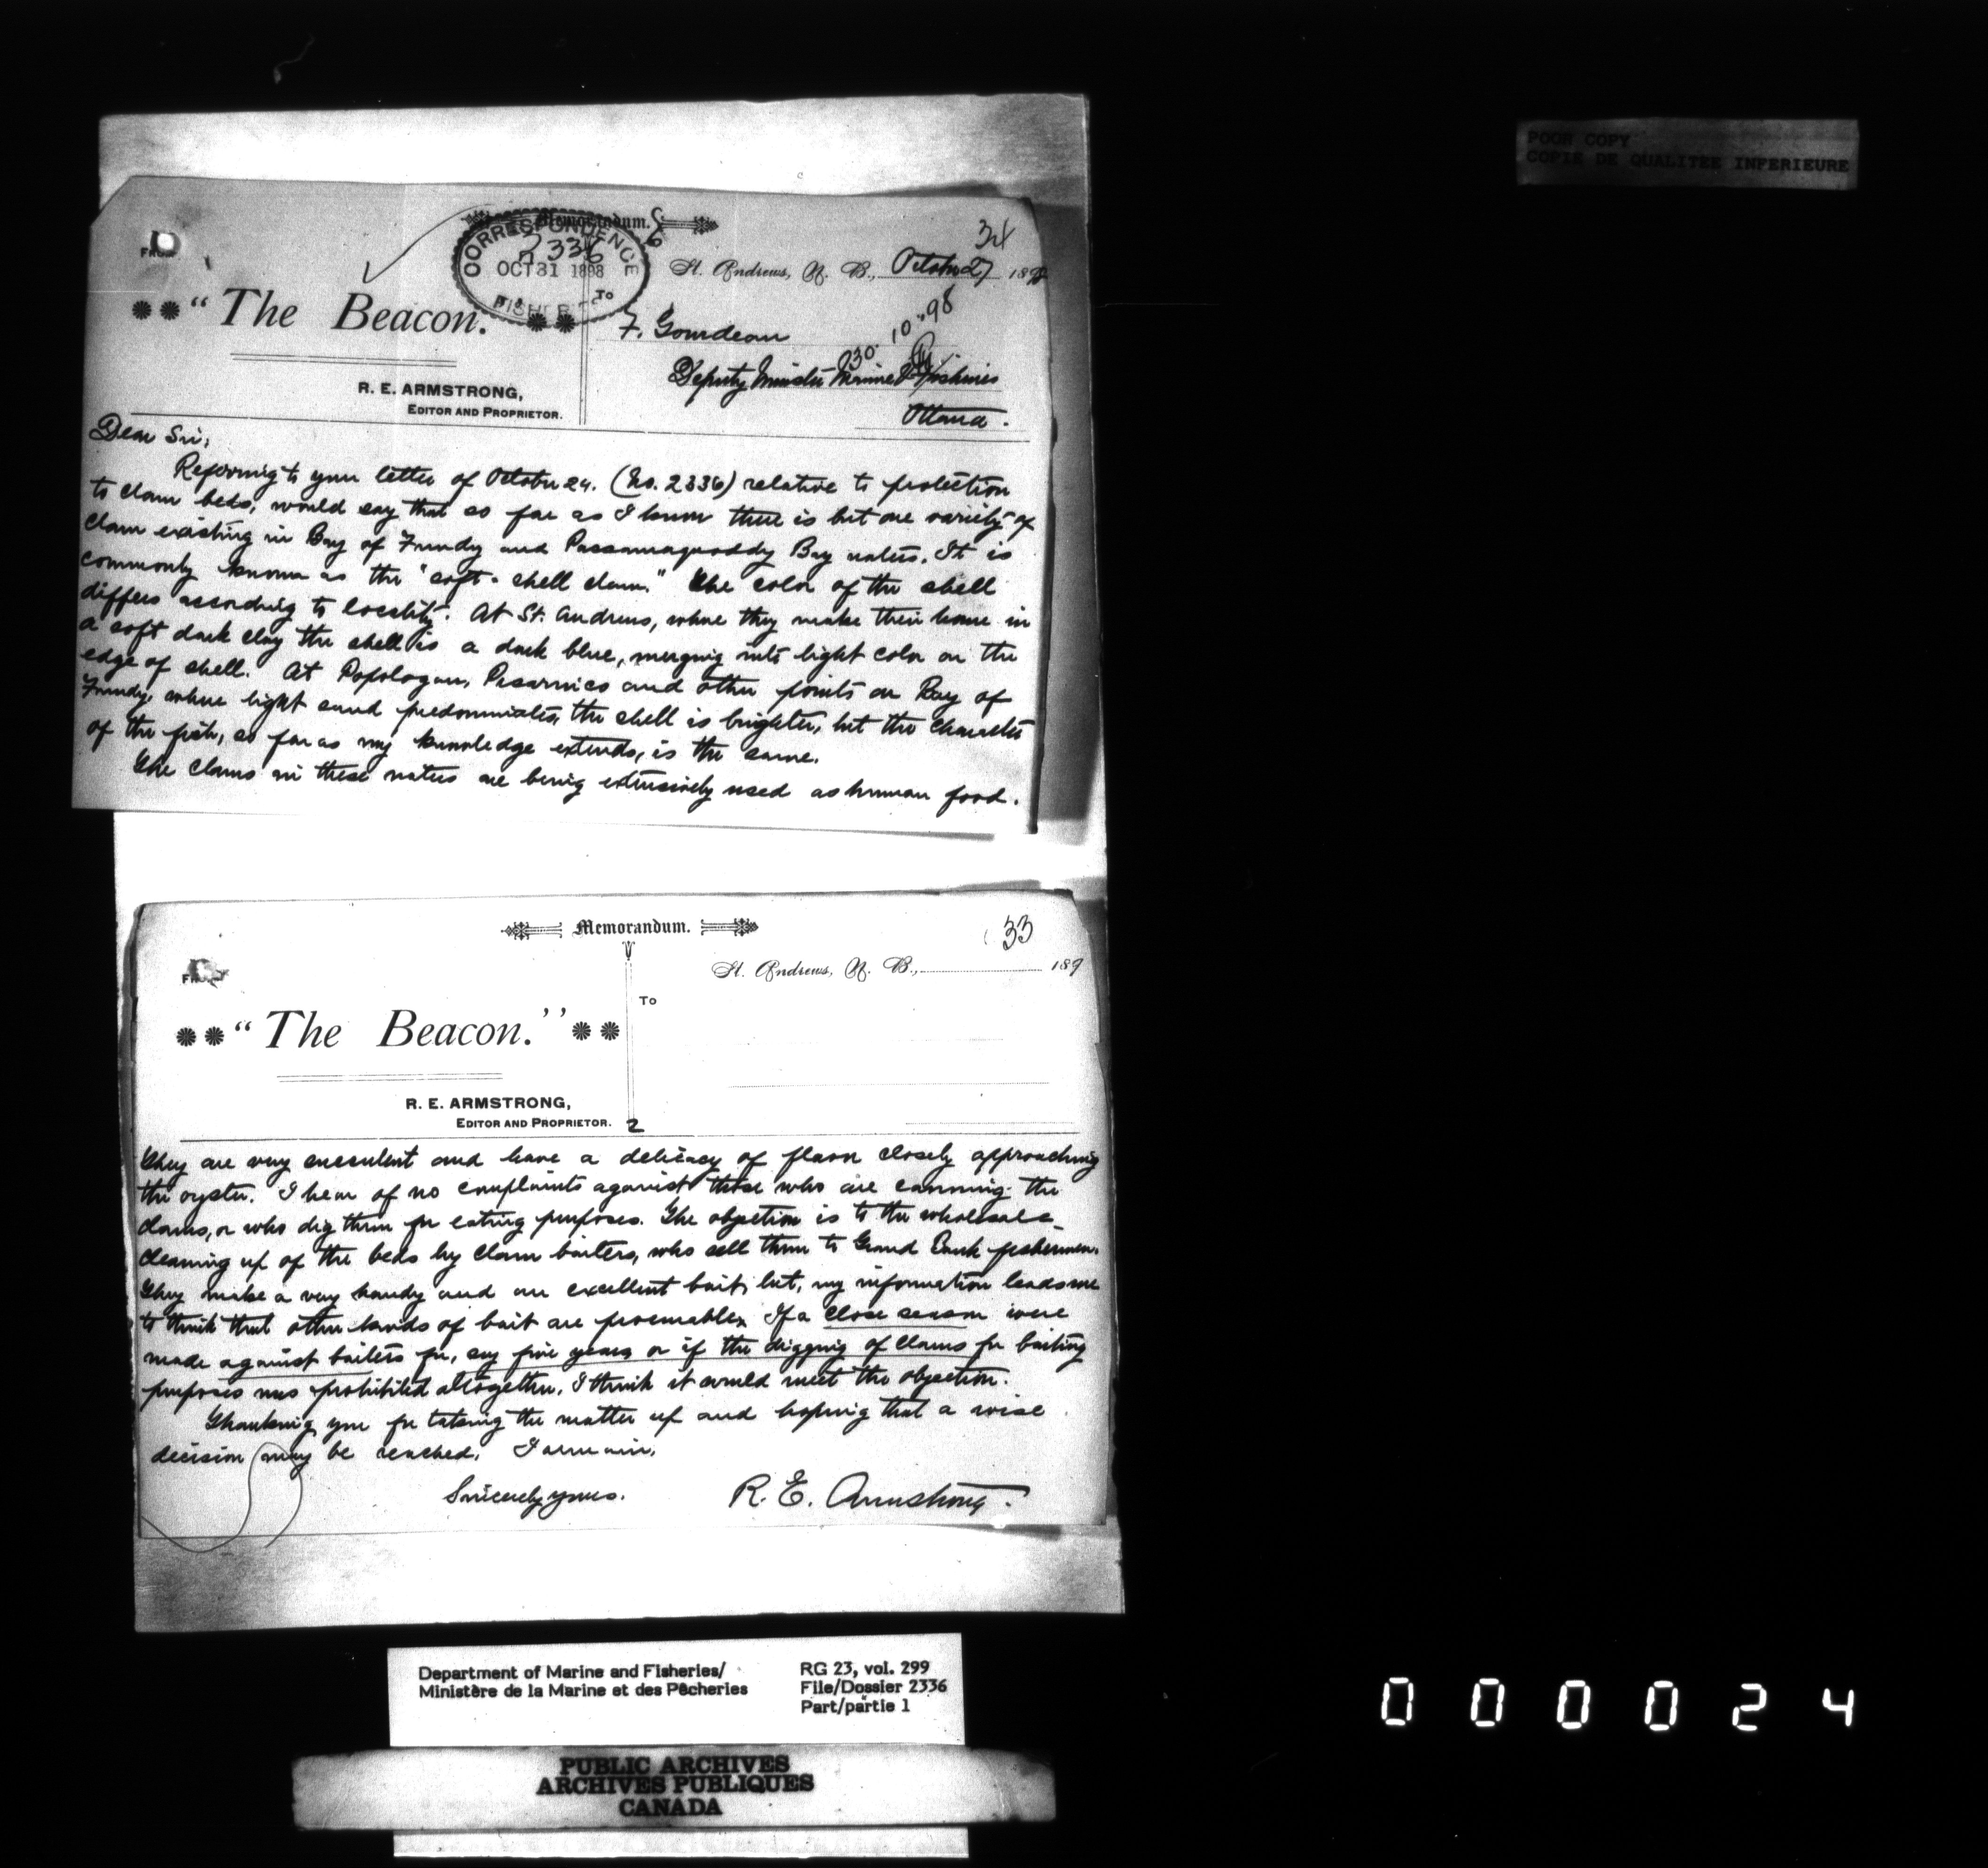 POOR COPY
COPIE DE QUALITEE INFERIEURE
34
Memorandum.
CORRESPONDENCE
2336
OCT 31 1898
FISHERIES
FROM
St. Andrews, N. B., October 27 189
To
"The Beacon."
F. Gourdeau
30.10.98
Deputy Minister Marine & Fisheries
Ottawa.
R. E. ARMSTRONG,
EDITOR AND PROPRIETOR.
Dear Sir,
Referring to your letter of October 24. (No. 2336) relative to protection
to clam beds, would say that so far as I know there is but one variety of
clam existing in Bay of Fundy and Passamaquoddy Bay waters. It is
commonly known as the "soft-shell clam." The color of the shell
differs according to locality. At St. Andrews, where they make their home in
a soft dark clay the shell is a dark blue, merging into light color on the
edge of shell. At Popologan, Pisarinco and other points on Bay of
Fundy, where light sand predominates, the shell is brighter, but the character
of the fish, so far as my knowledge extends, is the same.
The clams in these waters are being extensively used as human food.
Memorandum.
33
FROM
St. Andrews, N. B., 189
To
"The Beacon."
R. E. ARMSTRONG,
EDITOR AND PROPRIETOR.
2
They are very succulent and have a delicacy of flavor closely approaching
the oyster. I hear of no complaints against those who are canning the
clams, or who dig them for eating purposes. The objection is to the wholesale
cleaning up of the beds by clam baiters, who sell them to Grand Bank fishermen.
They make a very handy and an excellent bait, but, my information leads me
to think that other kinds of bait are procurable. If a close season were
made against baiters for, say five years, or if the digging of clams for baiting
purposes was prohibited altogether, I think it would meet the objection.
Thanking you for taking the matter up and hoping that a wise
decision may be reached, I remain,
Sincerely yours.
R. E. Armstrong.
Department of Marine and Fisheries/
Ministère de la Marine et des Pêcheries
RG 23, vol. 299
File/Dossier 2336
Part/partie 1
PUBLIC ARCHIVES
ARCHIVES PUBLIQUES
CANADA
000024